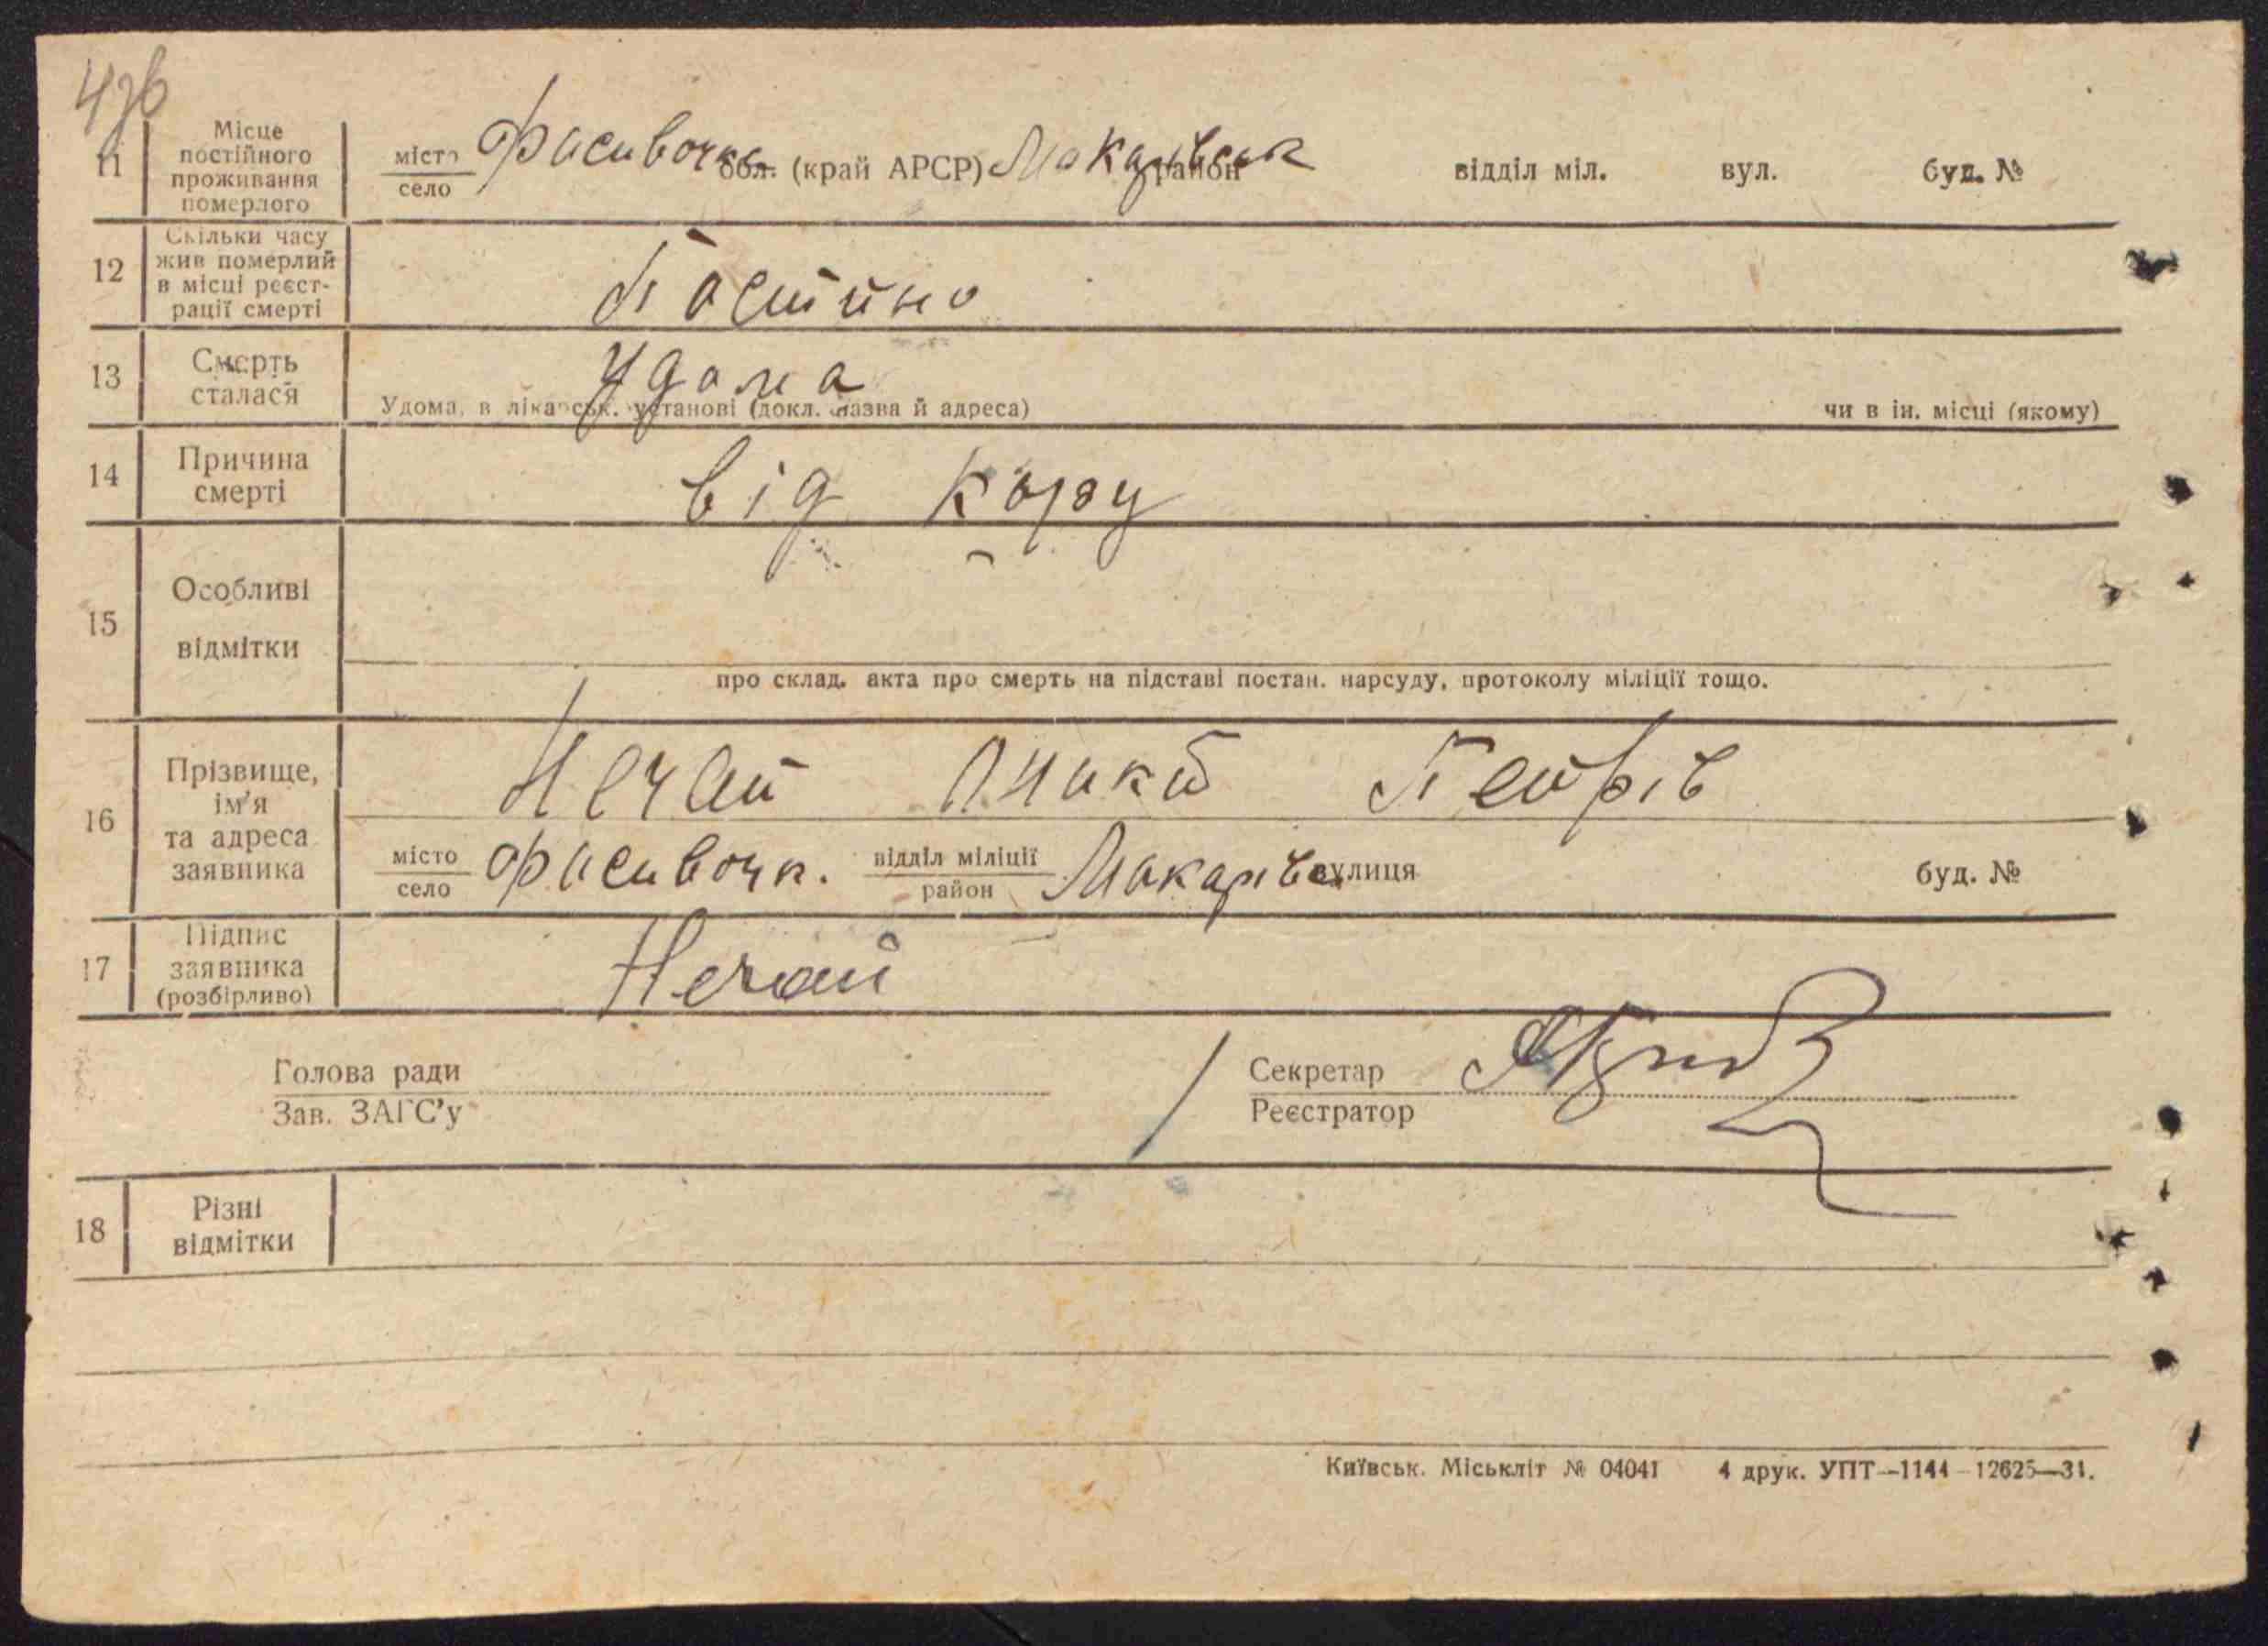 11 Місце постійного проживання померлого місто село Фасивочка обл. (край АРСР) Макарівськ район відділ міл. вул. буд. №
12 Скільки часу жив померлий в місці реєстрації смерті Постійно
13 Смерть сталася Удома
Удома, в лікарськ. установі (докл. назва й адреса) чи в ін. місці (якому)
14 Причина смерті від кору
15 Особливі відмітки
про склад. акта про смерть на підставі постан. нарсуду, протоколу міліції тощо.
16 Прізвище, ім'я та адреса заявника Нечай Петрів
місто село Фасивочк. відділ міліції район Макарівс вулиця буд. №
17 Підпис заявника (розбірливо) Нечай
Голова ради Секретар
Зав. ЗАГС'у Реєстратор
18 Різні відмітки
Київськ. Міськліт № 04041 4 друк. УПТ—1144—12625—31.